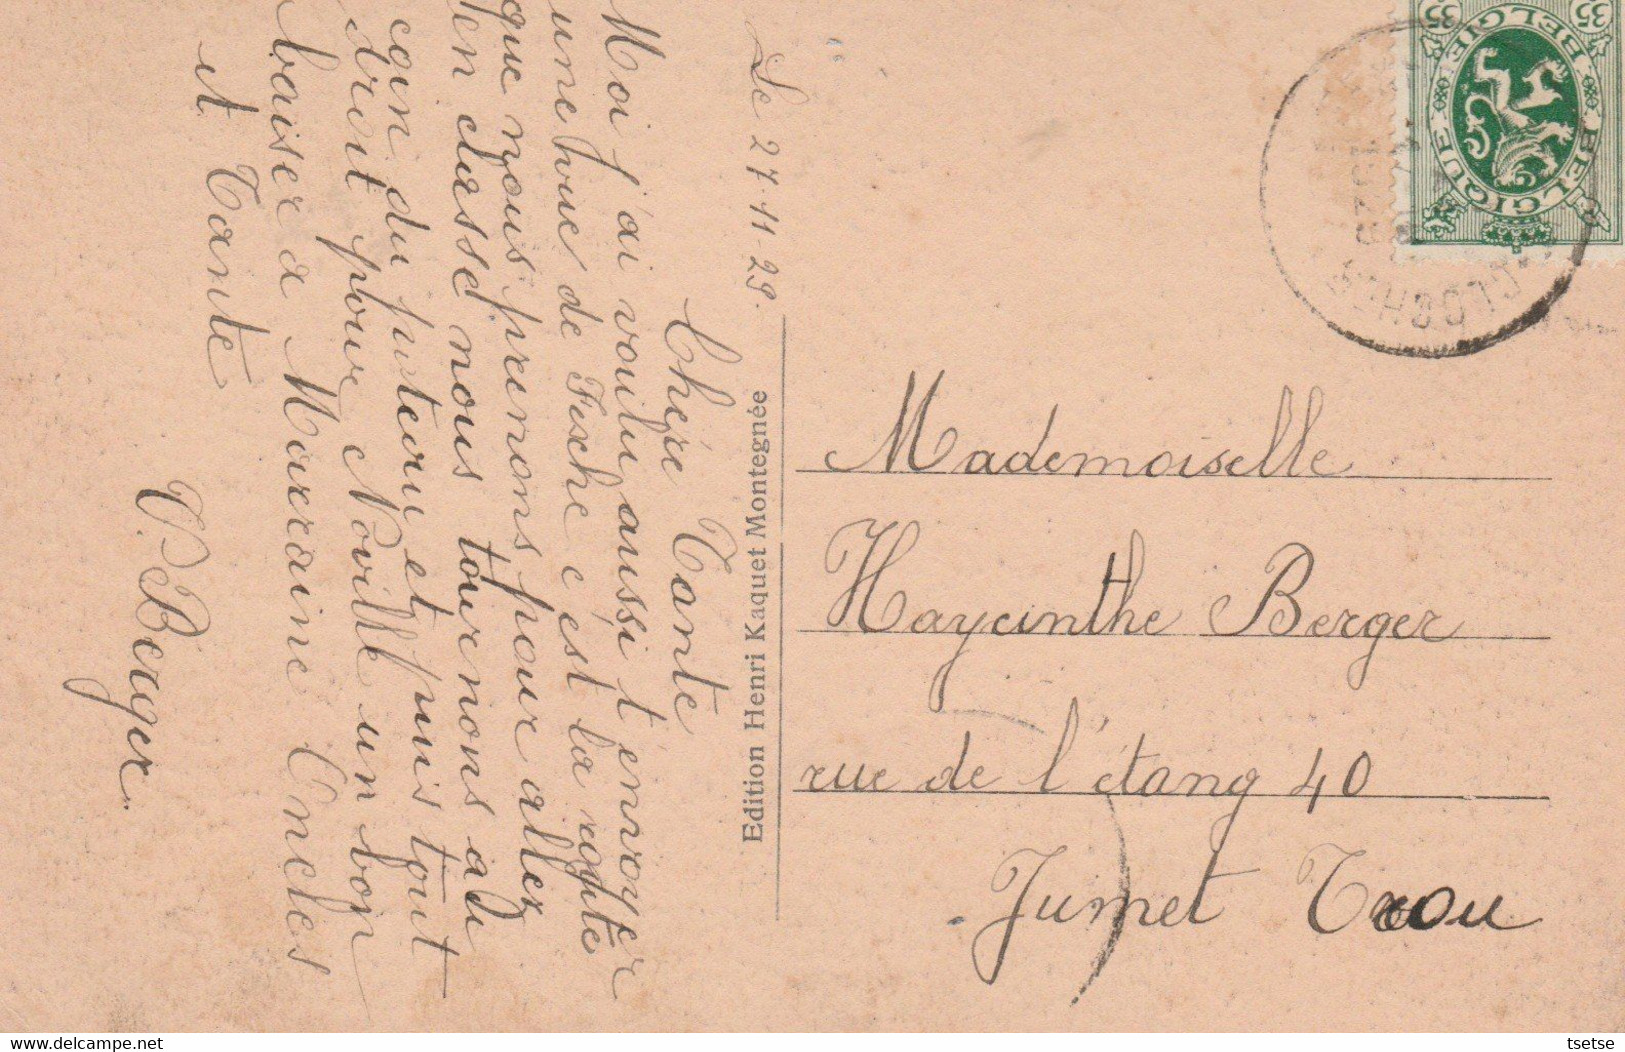 Le 27-11-29.
Chère Tante
Moi j'ai voulu aussi t'envoyer
une vue de Fexhe c'est la route
que nous prenons pour aller
en classe nous tournons au
coin du puteau et puis tout
droit pour Noville un bon
baiser a Marraine Oncles
et Tante
V. Berger.
Edition Henri Kaquet Montegnée
Mademoiselle
Haycinthe Berger
rue de l'étang 40
Jumet Trou
35 35
BELGIE BELGIQUE
tsetse